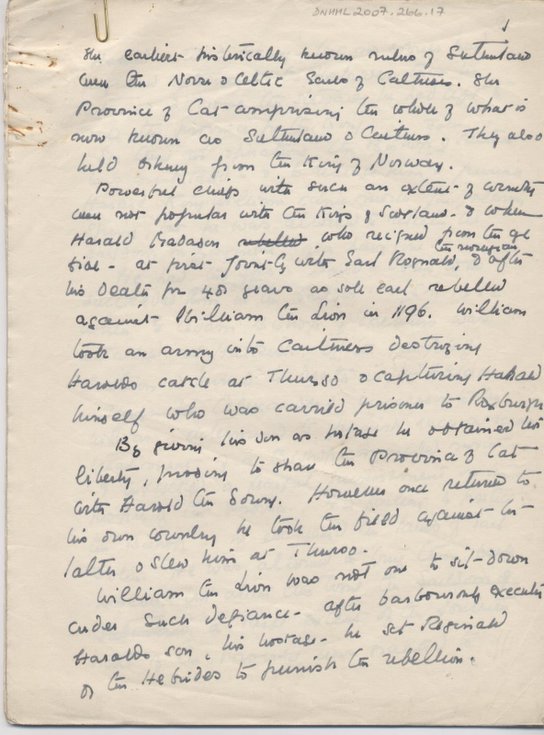 DNHML 2007.266.17
1
The earliest historically known rulers of Sutherland
were the Norse & Celtic Earls of Caithness. The
Province of Cat comprising the whole of what is
now known as Sutherland & Caithness. They also
held Orkney from the King of Norway.
Powerful chiefs with such an extent of country
were not popular with the Kings of Scotland - & when
Harald Madason rebelled, who reigned from the age
five - at first jointly with Earl Rognald, & after
the norwegian
his death for 48 years as sole earl rebelled
against William the Lion in 1196. William
took an army into Caithness destroying
Haralds castle at Thurso & capturing Harald
himself who was carried prisoner to Roxburgh
By giving his son as hostage he obtained his
liberty, promising to share the Province of Cat
with Harald the Young. However once returned to
his own country he took the field against the
latter & slew him at Thurso.
William the Lion was not one to sit down
under such defiance - after barbarously executing
Haralds son, his hostage - he set Reginald
of the Hebrides to punish the rebellion.